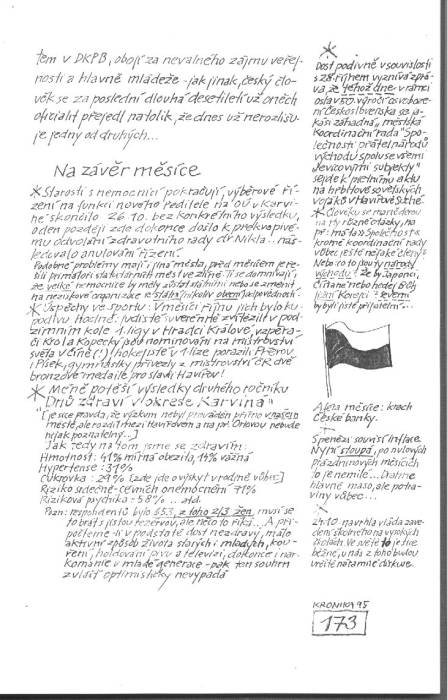 tem v DKPB, obojí za nevalného zájmu veřej-
nosti a hlavně mládeže - jak jinak, český člo-
věk se za poslední dlouhá desetiletí už oněch
oficialit přejedl natolik, že dnes už nerozlišu-
je jedny od druhých...
Na závěr měsíce
* Starosti s nemocnicí pokračují, výběrové ří-
zení na funkci nového ředitele na OÚ v Karvi-
né skončilo 26.10. bez konkrétního výsledku,
o den později zde dokonce došlo k překvapivé-
mu odvolání zdravotního rady dr Nikla... nás-
ledovalo anulování řízení.
Podobné problémy mají i jiná města, před měsícem re-
či primátoři statutárních měst ve Zlíně. Ti se domnívají,
že velké nemocnice by měly zůstat státními nebo se změnit
na neziskové organizace ve státní nikoliv obecní odpovědnosti.
* Úspěchy ve sportu: V měsíci říjnu jich bylo ku-
podivu hodně: judisté suverénně zvítězili v pod-
zimním kole 1. ligy v Hradci Králové, vzpěra-
či Král a Kopecký jsou nominováni na mistrovství
světa v Číně (!) hokejisté v 1. lize porazili Přerov
i Písek, gymnastky přivezly z mistrovství ČR dvě
bronzové medaile pro slavii Havířov!
* Méně potěší výsledky druhého ročníku
"Dnů zdraví v okrese Karviná"
[je sice pravda, že výzkum nebyl prováděn přímo v našem
městě, ale rozdíl mezi Havířovem a na př. Orlovou nebude
nijak poznatelný...]
Jak tedy na tom jsme se zdravím:
Hmotnost: 41% mírná obezita, 14% vážná
Hypertense: 31%
Cukrovka: 29% [zde jde o výskyt v rodině vůbec]
Riziko srdečně-cévních onemocnění 91%
Riziková psychika: 58% ... atd.
Pozn: respondentů bylo 653, z toho 2/3 žen, musí se
to brát s jistou rezervou, ale něco to říká... A při-
počteme-li v podstatě dost nezdravý, málo
aktivní způsob života starých i mladých, kou-
ření, holdování pivu a televizi, dokonce i nar-
kománie v mladé generace - pak ten souhrn
zvlášť optimisticky nevypadá
*
Dost podivně v souvislosti
s 28. říjnem vyznívá zprá-
va, že téhož dne v rámci
oslav 50. výročí osvobození
Československa se ja-
kási záhadná "městská
koordinační rada" "Spo-
lečnosti přátel národů
východu spolu se všemi
levicovými subjekty"
sejde k pietnímu aktu
na hřbitově sovětských
vojáků v Havířově-Suché.
* Člověku se mantderou
na rty různé otázky, na
př: má tato Společnost a
kromě koordinační rady
vůbec ještě nějaké členy?
Nebo co to jsou ty národy
východu? že by Japonci,
Číňané nebo hoděj Bůh
Korejci - severní
by byli jisté přijatelní...
Aféra měsíce: krach
České banky.
*
S penězi souvisí inflace.
Nyní stoupá, po nulových
prázdninových měsících
to je nemilé... Drahne
hlavně maso, ale potra-
viny vůbec...
*
24.10. navrhla vláda zave-
dení školného na vysokých
školách. Ve světě to je dne
běžné, u nás z toho budou
určitě náramné diskuse.
KRONIKA 95
173